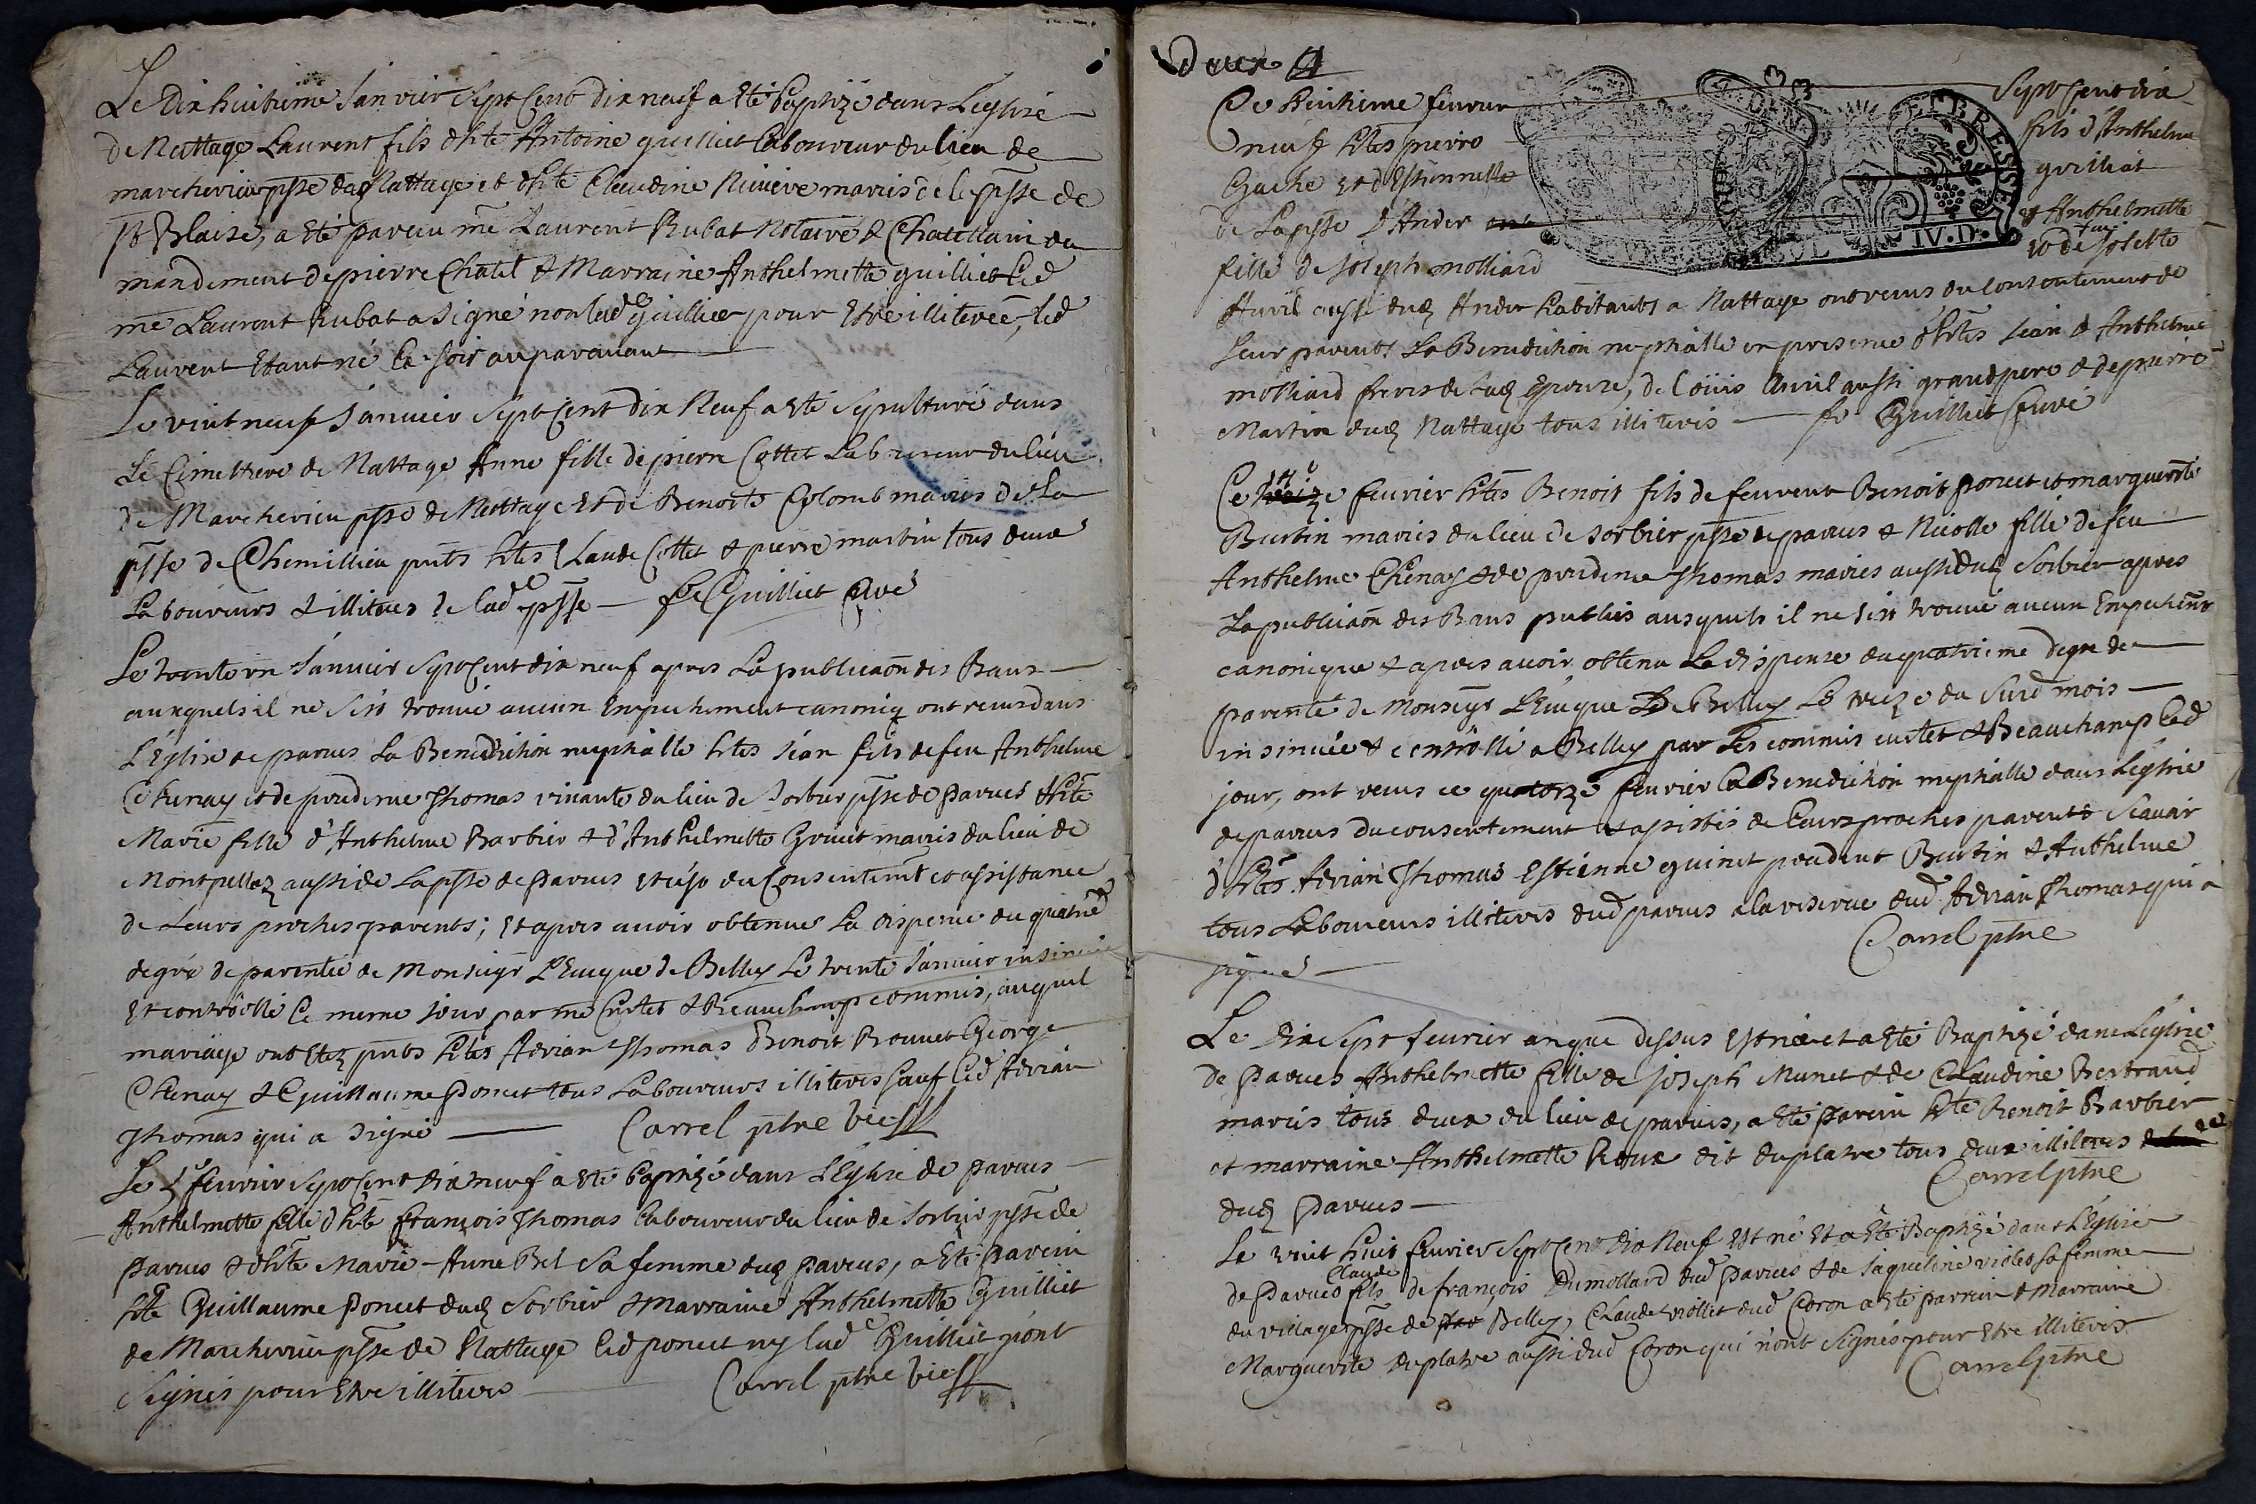 Le dix huitieme Janvier Sept Cent dix neuf a eté baptizé dans L'eglise
de Nattage Laurent fils d'hte Antoine guilliet laboureur du lieu de
marcherieu psse de Nattage et d'hte Claudine Riviere mariés de la psse de
St Blaise, a eté parein me Laurent Rubat Notaire & Chatellain du
mandement de pierre Chatel & Marraine Anthelmette guilliet Led
me Laurent Rubat a signé non lade guilliet pour Etre illiterée, led
Laurent Etant né le soir auparavant
Le vint neuf Janvier Sept Cent dix Neuf a eté sepulturé dans
Le Cimettiere de Nattage Anne fille de pierre Cottet Laboureur du lieu
de Marcherieu psse de Nattage et de Benoite Colomb mariés de la
psse de Chemillieu pnts htes Claude Cottet & pierre martin tous deux
Laboureurs & illiteres de lade psse fr Guilliet Curé
Le trente un Janvier Sept Cent dix neuf apres La publicaon des Bans
auxquels il ne s'est trouvé aucun Empechement canoniq ont receus dans
L'Eglise de parves La Benediction nuptialle htes Jean fils de feu Anthelme
Chenay et de prudence Thomas vivante du lieu de Sorbier psse de Parves & hte
Marie fille d'Anthelme Barbier & d'Anthelmette Gruiet mariés du lieu de
Montpellaz aussi de La psse de Parves et ce du Consentemt et assistance
de Leurs proches parents; Et apres avoir obtenue La dispence du quatrie
degré de parentée de Monseigr L'Eveque de Belley Le trente Janvier insinuée
Et controllé Le meme jour par me Custet & Beauchamp commis, auquel
mariage ont Etez pnts htes Adrian Thomas Benoit Bonnet George
Chenay & Guillaume Poncet tous Laboureurs illiteres sauf Led Adrian
Thomas qui a signé Carrel ptre vic
Le 5e fevrier Sept Cent dix neuf a eté baptizé dans L'Eglise de Parves
Anthelmette fille d'hte françois Thomas laboureur du lieu de Sorbier psse de
Parves & d'hte Marie-Anne Bel sa femme dud Parves, a eté Parein
hte Guillaume Poncet dud Sorbier & Marraine Anthelmette Guilliet
de Marcherieu psse de Nattage led poncet ny lade Guilliet n'ont
signés pour Etre illiteres Carrel ptre vic
Deux
Ce huitieme fevrier Sept Cent dix
neuf htes pierre fils d'Anthelme
Gache et d'Estiennette guilliat
de La psse d'Ander & Anthelmette
fille de Joseph molliard et de feu Josette
Avril aussi dud Ander habitants a Nattage ont receus du consentement de
leur parents La Benediction nuptialle en presence d'htes Jean & Anthelme
molliard freres de lad Epouze, de Loüis Avril aussi grand pere & de pierre
Martin dud Nattage tous illiteres fr Guilliet Curé
Ce fevrier htes Benoit fils de feu Benoit Poncet et marguerite
Burtin mariés du lieu de Sorbier psse de parves & Nicolle fille de feu
Anthelme Chenay & de prudence Thomas mariés aussi dud Sorbier apres
La publicaon des Bans publiés auxquels il ne s'est trouvé aucun Empechemt
canonique & apres avoir obtenu La dispense du quatrieme degre de
parenté de Monseigr L'Eveque De Belley Le treize du susd mois
insinuée & controllé a Belley par les commis custet & Beauchamp Led
jour, ont receus ce quatorze fevrier La Benediction nuptialle dans L'eglise
de parves du consentement & assistés de leurs proches parents Scavoir
d'htes Adrian Thomas Estienne guinet prudent Burtin & Anthelme
tous Laboureurs illiteres dud parves a la reserve dud Adrian Thomas qui a
signé Carrel ptre
Le dix Sept fevrier an que dessus Est née et a eté Baptizé dans L'eglise
de Parves Anthelmette fille de Joseph Munet & de Claudine Bertrand
mariés tous deux du lieu de parves, a eté parein hte Benoit Barbier
et marraine Anthelmette Roux dit duplatre tous deux illiteres
dud Parves Carrel ptre
Le vint huit fevrier Sept Cent dix Neuf Est né Et a eté Baptizé dans L'Eglise
de Parves Claude fils de françois Dumollard dud Parves & de Jaqueline violet sa femme
du village psse de Belley, Claude viollet dud Coron a eté parrein & Marraine
Marguerite duplatre aussi dud Coron qui n'ont signés pour Etre illiteres
Carrel ptre
BRESSE
IV.D.